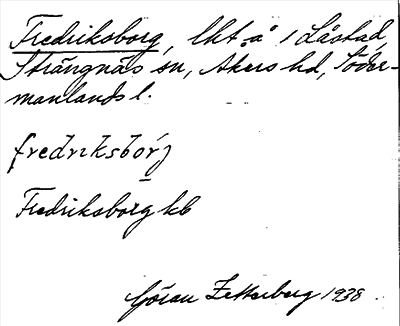 Fredriksborg, lht å 1 Låstad,
Strängnäs sn, Åkers hd, Söder-
manlands l.
fredrıksbórj
Fredriksborg kb
Göran Zetterberg 1938